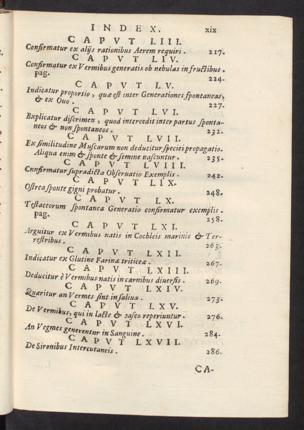 INDEX. xix
CAPVT LIII.
Confirmatur ex alijs rationibus Aerem requiri. 217.
CAPVT LIV.
Confirmatur ex Vermibus generatis ob nebulas in fructibus.
pag. 224.
CAPVT LV.
Indicatur proportio, quæ est inter Generationes spontaneas,
& ex Ouo. 227.
CAPVT LVI.
Explicatur discrimen, quod intercedit inter partus sponta-
neos & non spontaneos. 232.
CAPVT LVII.
Ex similitudine Muscarum non deducitur speciei propagatio.
Aliqua enim & sponte & semine nascuntur. 235.
CAPVT LVIII.
Confirmatur supradicta Obseruatio Exemplis. 242.
CAPVT LIX.
Ostrea sponte gigni probatur. 248.
CAPVT LX.
Testaceorum spontanea Generatio confirmatur exemplis.
pag. 258.
CAPVT LXI.
Arguitur ex Vermibus natis in Cochleis marinis & Ter-
restribus. 263.
CAPVT LXII.
Indicatur ex Glutine Farinæ triticeæ. 267.
CAPVT LXIII.
Deducitur è Vermibus natis in carnibus diuersis. 269.
CAPVT LXIV.
Quæritur an Vermes sint in saliua. 273.
CAPVT LXV.
De Vermibus, qui in lacte & caseo reperiuntur. 276.
CAPVT LXVI.
An Vermes generentur in Sanguine. 284.
CAPVT LXVII.
De Sironibus Intercutaneis. 286.
CA-